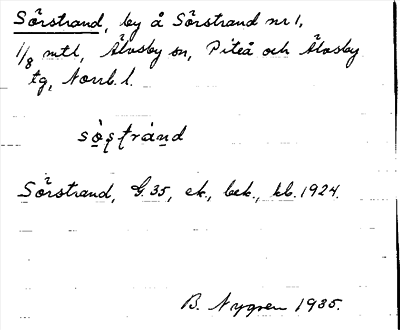 Sörstrand, by å Sörstrand nr 1,
1/8 mtl, Älvsby sn, Piteå och Älvsby
tg, Norrb. l.
Sörstrand, G. 35, ek., bek., kb. 1924.
B. Nygren 1935.